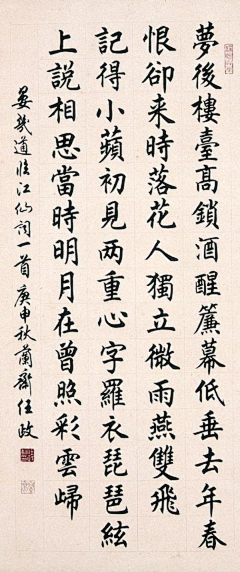 夢後樓臺高鎖酒醒簾幕低垂去年春
恨卻来時落花人獨立微雨燕雙飛
記得小蘋初見两重心字羅衣琵琶絃
上說相思當時明月在曾照彩雲歸
晏幾道臨江仙詞一首庚申秋蘭齋任政